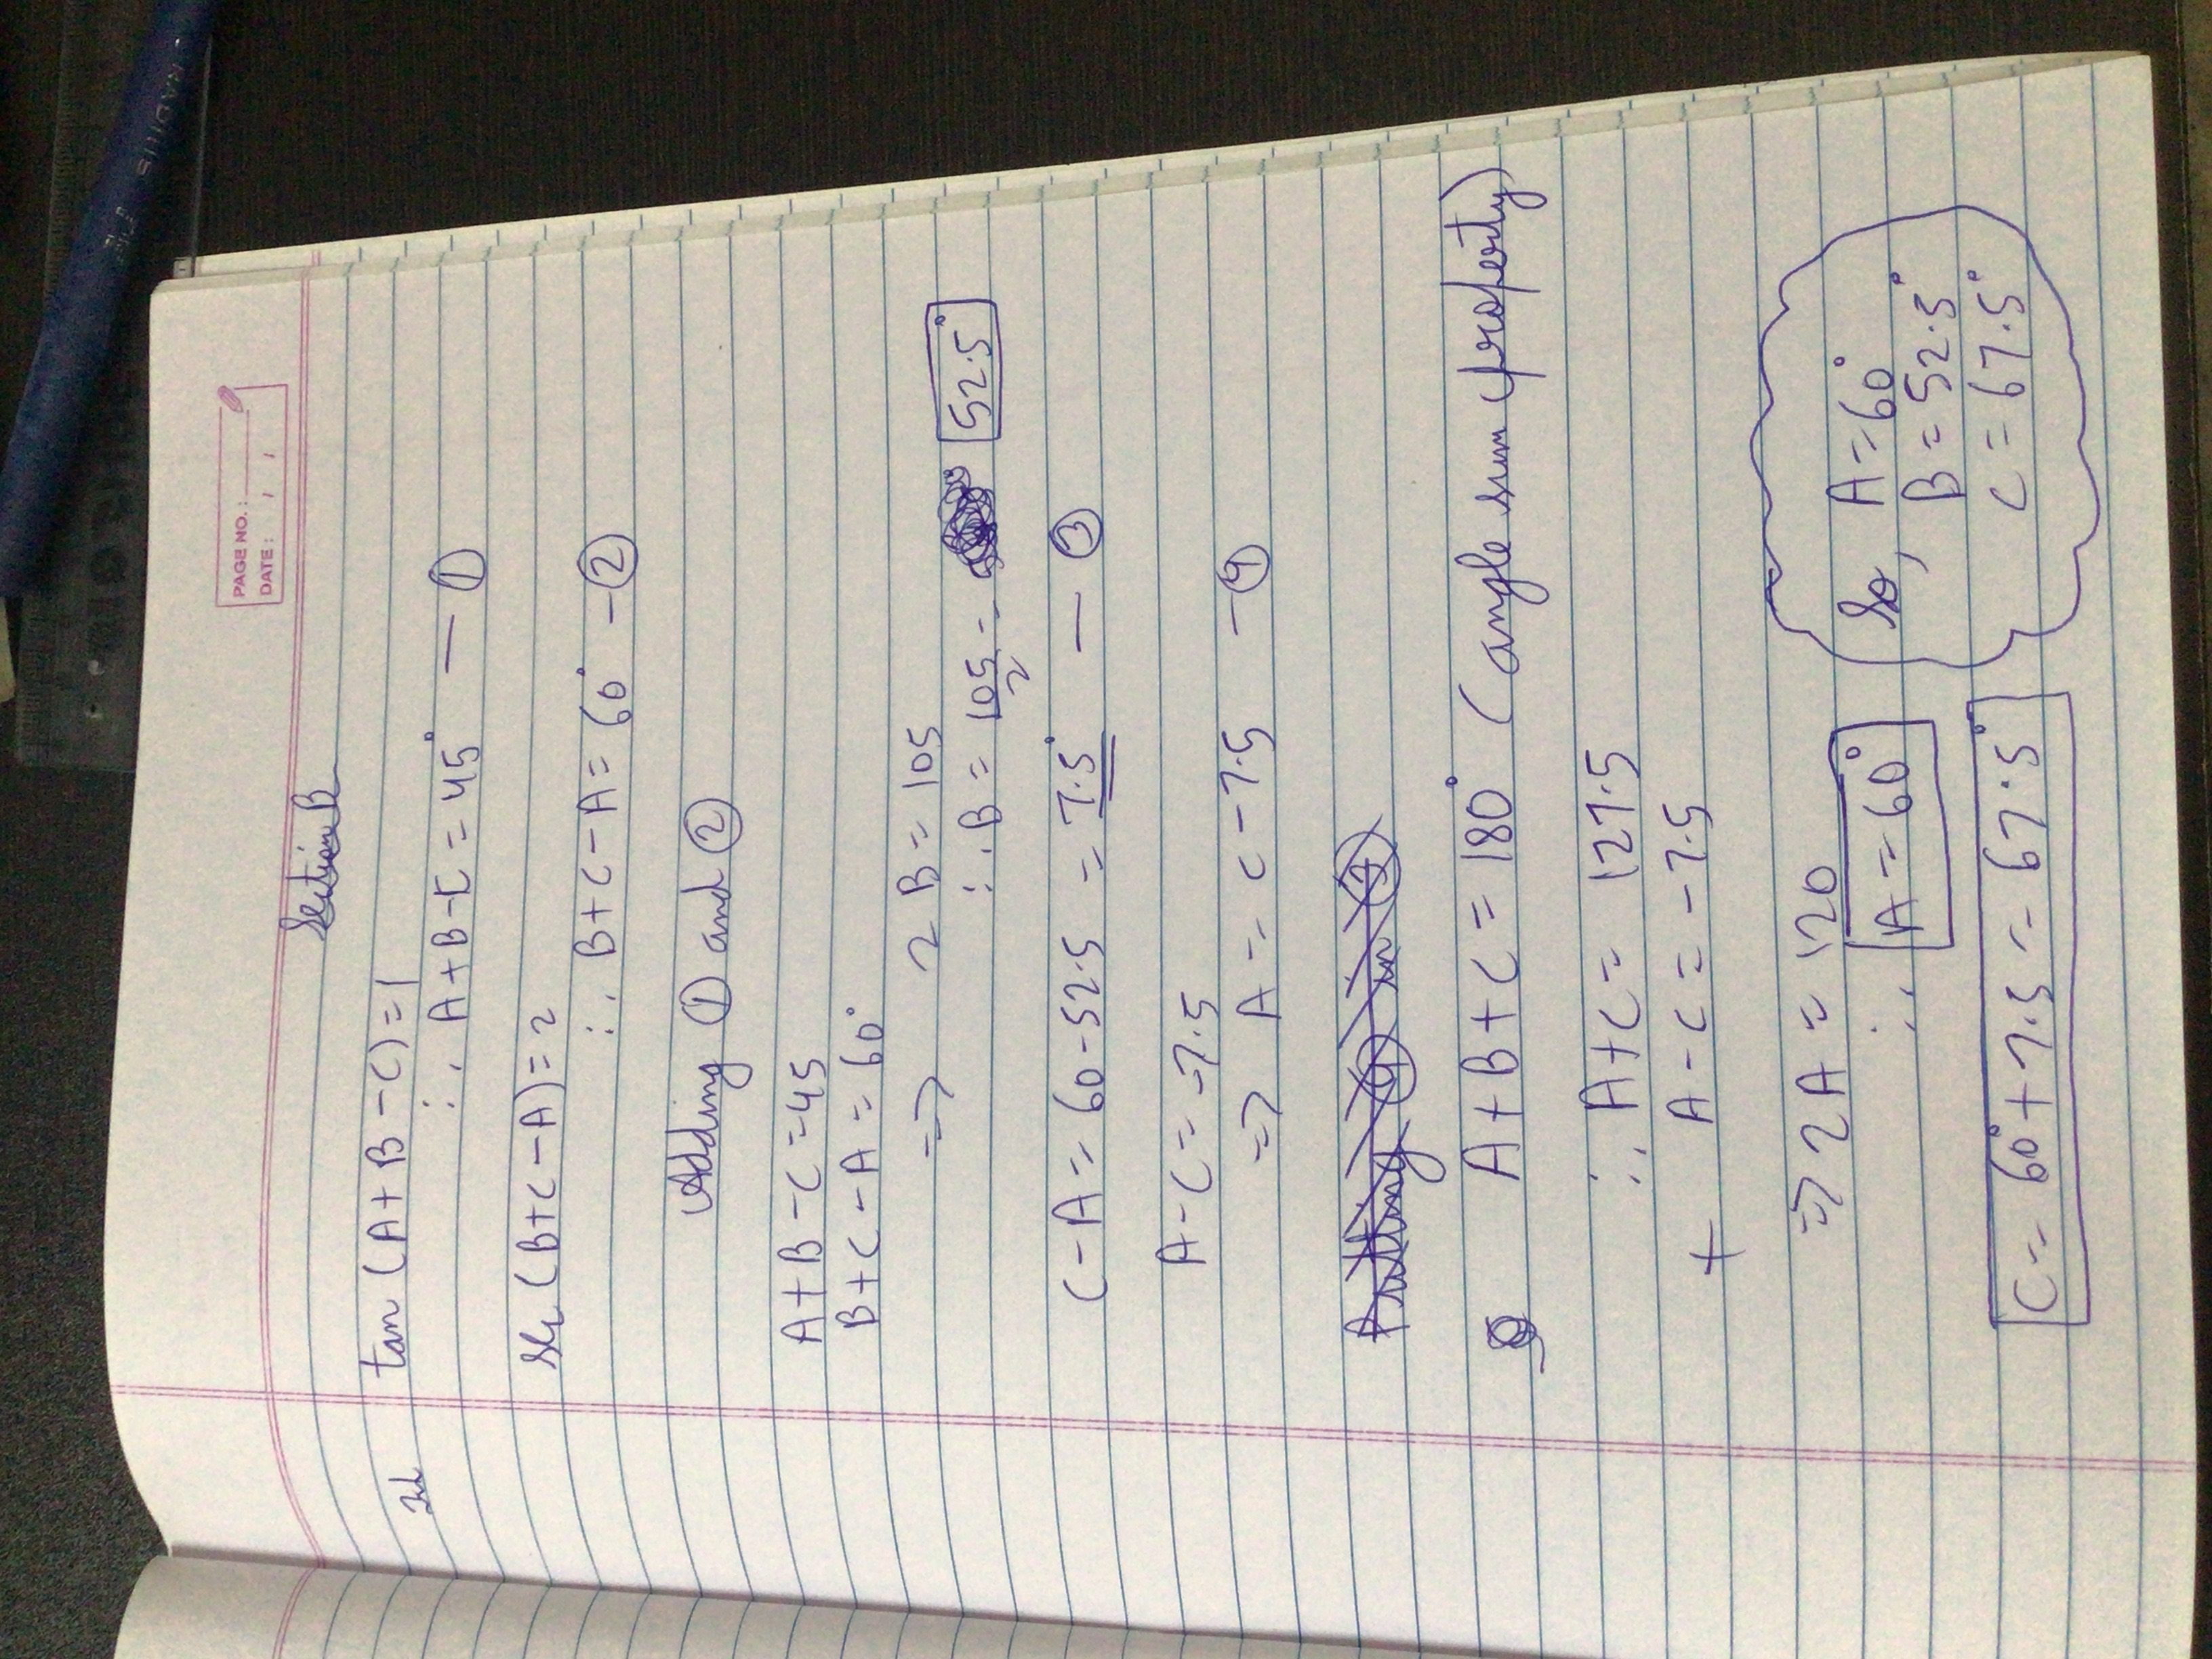 PAGE NO.:
DATE: / /
Section B
tan (A+B-C)=1
∴ A+B-C=45° — ①
Sec (B+C-A)=2
∴ B+C-A=60° -②
Adding ① and ②
A+B-C=45
B+C-A=60°
=> 2B=105
∴ B=105/2= 52.5°
C-A=60-52.5 = 7.5° — ③
A-C=-7.5
=> A=C-7.5 -④
Putting ④ in ③
A+B+C=180° (angle sum property)
∴ A+C=127.5
+ A-C=-7.5
=> 2A=120
∴ A=60°
C=60°+7.5=67.5°
So, A=60°
B=52.5°
C=67.5°